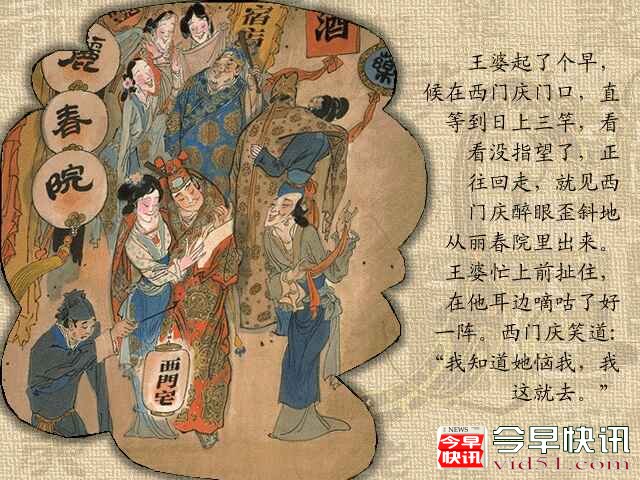 酒
宿店
藥
麗
春
院
西門宅
王婆起了个早，
候在西门庆门口，直
等到日上三竿，看
看没指望了，正
往回走，就见西
门庆醉眼歪斜地
从丽春院里出来。
王婆忙上前扯住，
在他耳边嘀咕了好
一阵。西门庆笑道：
“我知道她恼我，我
这就去。”
NEWS
今早
快讯
今早快讯
vid51.com